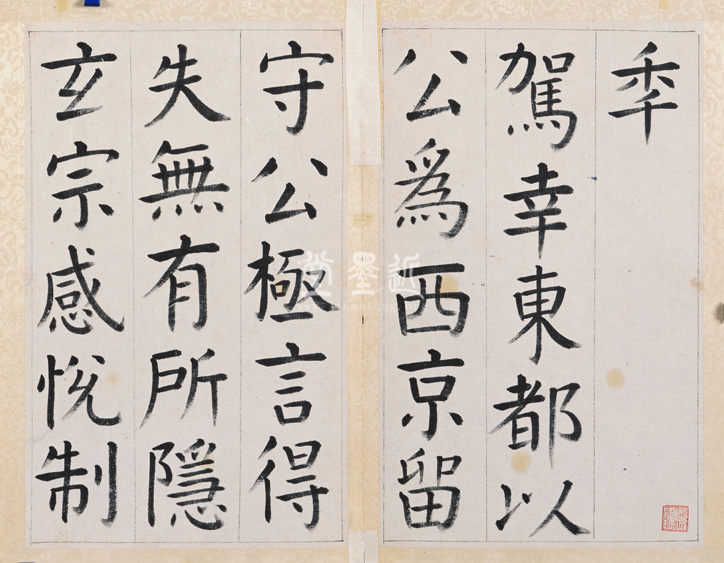 年
駕幸東都以
公爲西京留
守公極言得
失無有所隱
玄宗感悅制